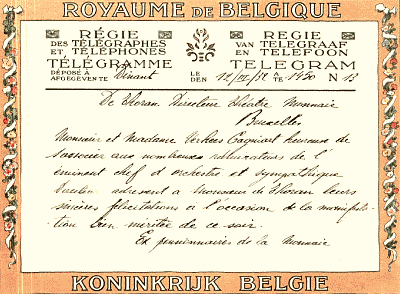 ROYAUME DE BELGIQUE
RÉGIE
DES TÉLÉGRAPHES
ET TÉLÉPHONES
TÉLÉGRAMME
DÉPOSÉ À
AFGEGEVEN TE Dinant
REGIE
VAN TELEGRAAF
EN TELEFOON
TELEGRAM
LE
DEN 12/III/52 À
TE 1420 N 13
De Thoran Directeur Théâtre Monnaie
Bruxelles
Monsieur et Madame heureux de
s'associer aux nombreux admirateurs de l'
éminent chef d'orchestre et sympathique
adressent à Monsieur De Thoran leurs
sincères félicitations à l'occasion de la manifesta-
tion bien méritée de ce soir.
Ex pensionnaires de la Monnaie
KONINKRIJK BELGIE